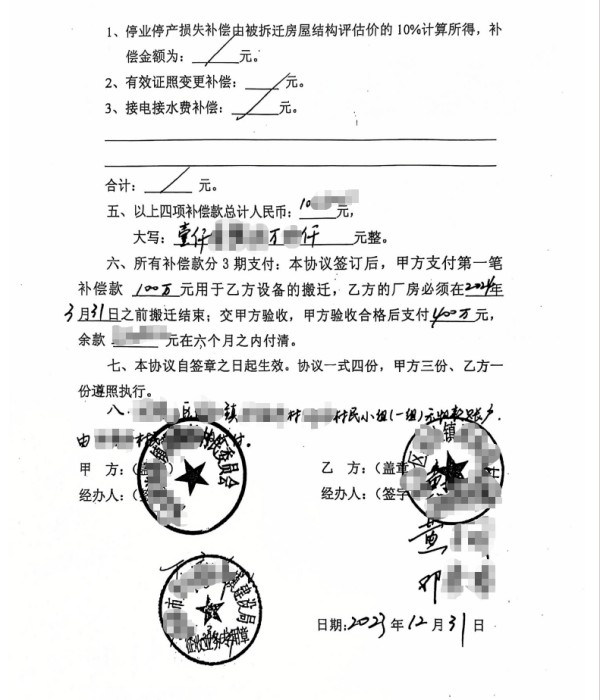 1、停业停产损失补偿由被拆迁房屋结构评估价的10%计算所得，补
偿金额为： / 元。
2、有效证照变更补偿： / 元。
3、接电接水费补偿： / 元。
合计： / 元。
五、以上四项补偿款总计人民币：10 元，
大写：壹仟 万 仟 元整。
六、所有补偿款分3期支付：本协议签订后，甲方支付第一笔
补偿款 100万 元用于乙方设备的搬迁，乙方的厂房必须在2024年
3月31日之前搬迁结束；交甲方验收，甲方验收合格后支付400万元，
余款 元在六个月之内付清。
七、本协议自签章之日起生效。协议一式四份，甲方三份、乙方一
份遵照执行。
八、 区 镇 村 村民小组(一组)无收款账户，
由 村 付。
甲 方：（
乙 方：（盖章
经办人：（
经办人：（签字
委员会
区 镇 村
黄
邓
市 建设局
征收业务专用章
日期：2023年12月31日